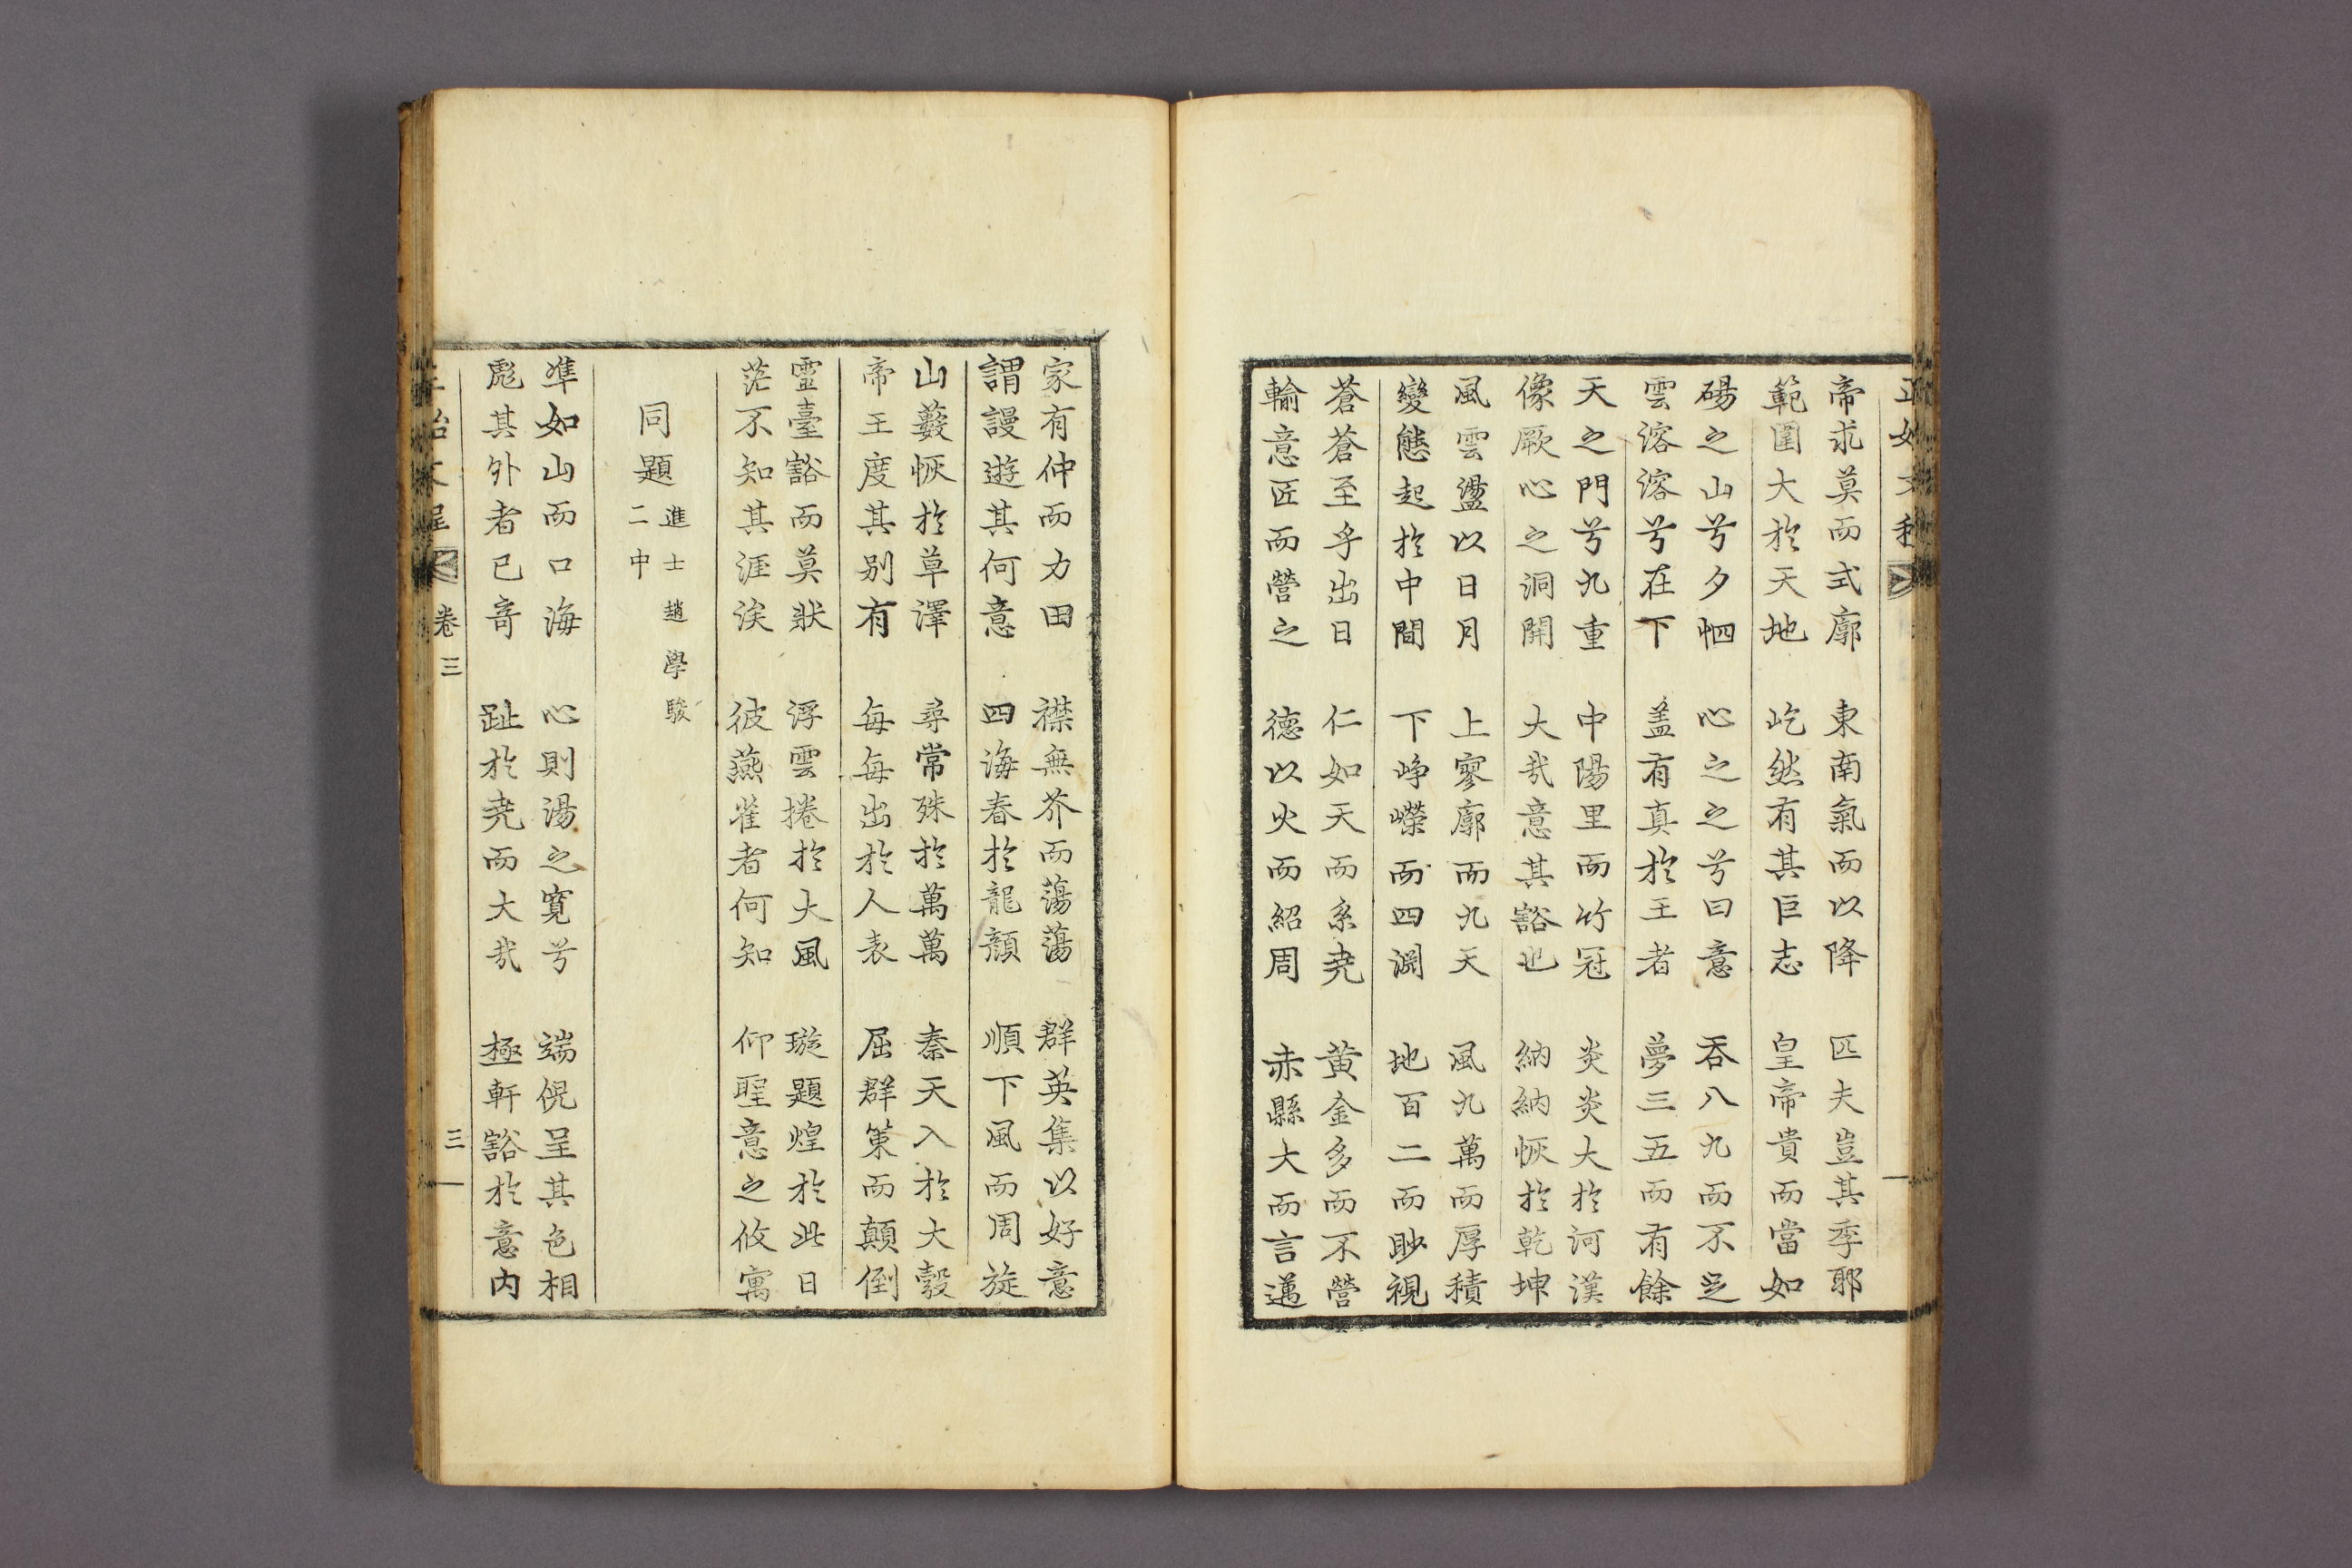 帝求莫而式廓 東南氣而以降 匹夫豈其季耶
範圍大於天地 屹然有其巨志 皇帝貴而當如
碭之山兮夕 心之之兮曰意 吞八九而不足
雲溶溶兮在下 盖有真於王者 夢三五而有餘
天之門兮九重 中陽里而竹冠 炎炎大於河漢
像厥心之洞開 大㢤意其豁也 納納恢於乾坤
風雲盪以日月 上寥廓而九天 風九萬而厚積
變態起於中間 下崢嶸而四淵 地百二而眇視
蒼蒼至乎出日 仁如天而系堯 黃金多而不營
輸意匠而營之 德以火而紹周 赤縣大而言邁
家有仲而力田 襟無芥而蕩蕩 群英集以好意
謂謾遊其何意 四海春於龍顏 順下風而周旋
山藪恢於草澤 尋常殊於萬萬 秦天入於大彀
帝王度其別有 每每出於人表 屈群策而顛倒
靈臺豁而莫狀 浮雲捲於大風 璇題煌於此日
茫不知其涯涘 彼燕雀者何知 仰聖意之攸寓
同題 進士趙學駿
二中
準如山而口海 心則湯之寬兮 端倪呈其色相
彪其外者已奇 趾於堯而大㢤 極軒豁於意內
卷三 三